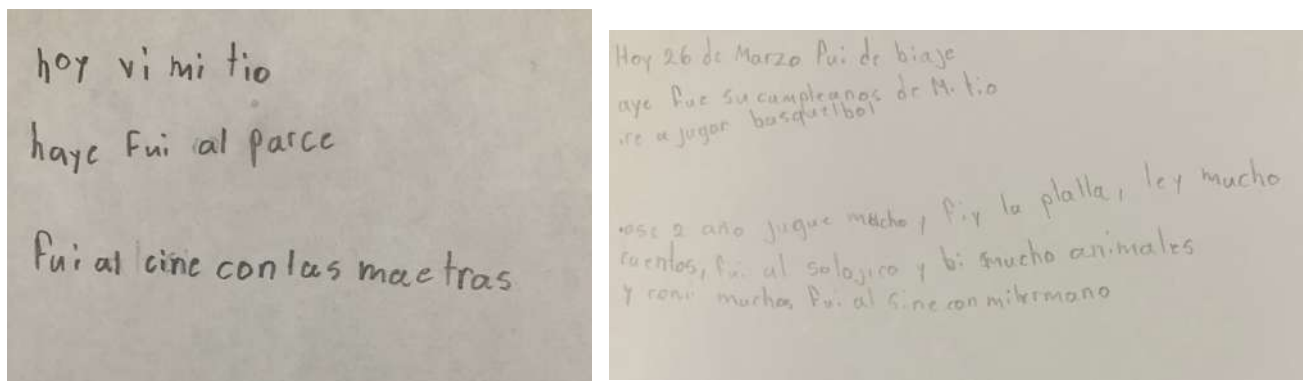 hoy vi mi tio
haye Fui al parce
Fui al cine con las maetras
Hoy 26 de Marzo Fui de biaje
aye fue su cumpleanos de Mi tio
ire a jugar basquetbol
ase 2 año jugue mucho, fiy la platlla, ley mucho
cuentos, fui al solojico y bi mucho animales
y comi muchas fui al sine con mihermano